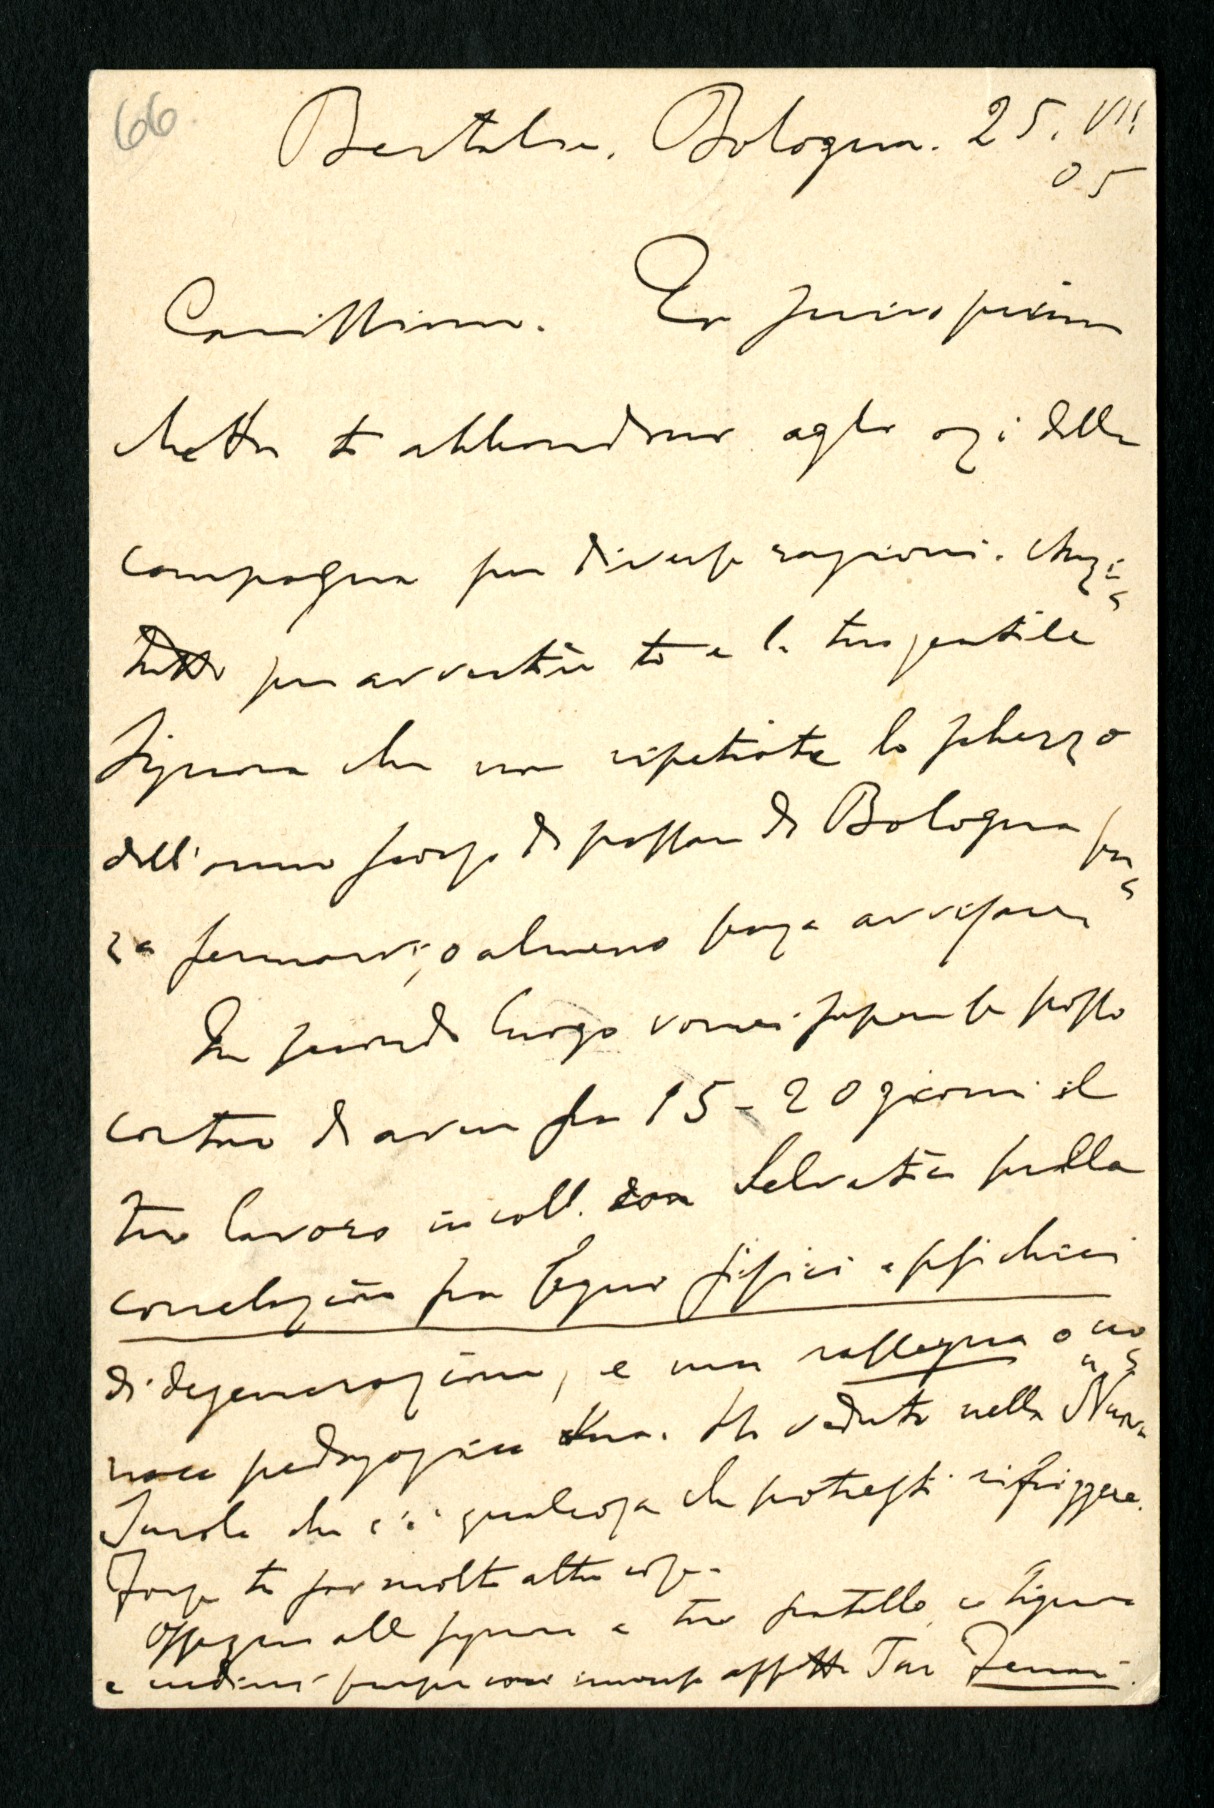 66
Bertalia. Bologna. 25. VII.
05
Carissimo. Ti scrivo prima
che tu ti abbandoni agli ozi della
campagna per diverse ragioni. Anzi=
tutto per avvertire te e la tua gentile
Signora che non ripetiate lo scherzo
dell'anno scorso di passare di Bologna sen=
za fermarvi, o almeno senza avvisarci
In secondo luogo vorrei sapere se posso
contare di avere fra 15-20 giorni il
tuo lavoro in coll. con Selvatico sulla
correlazione fra segni fisici e psichici
di degenerazione, e una rassegna o un=
pedagogica tua. Ho veduto nella Nuova
Scuola che c'è qualcosa che potresti rifriggere.
Forse tu hai molte altre cose.
Ossequi alla signora a tuo fratello e signora
e credimi sempre con immenso affetto Tuo Ferrari.